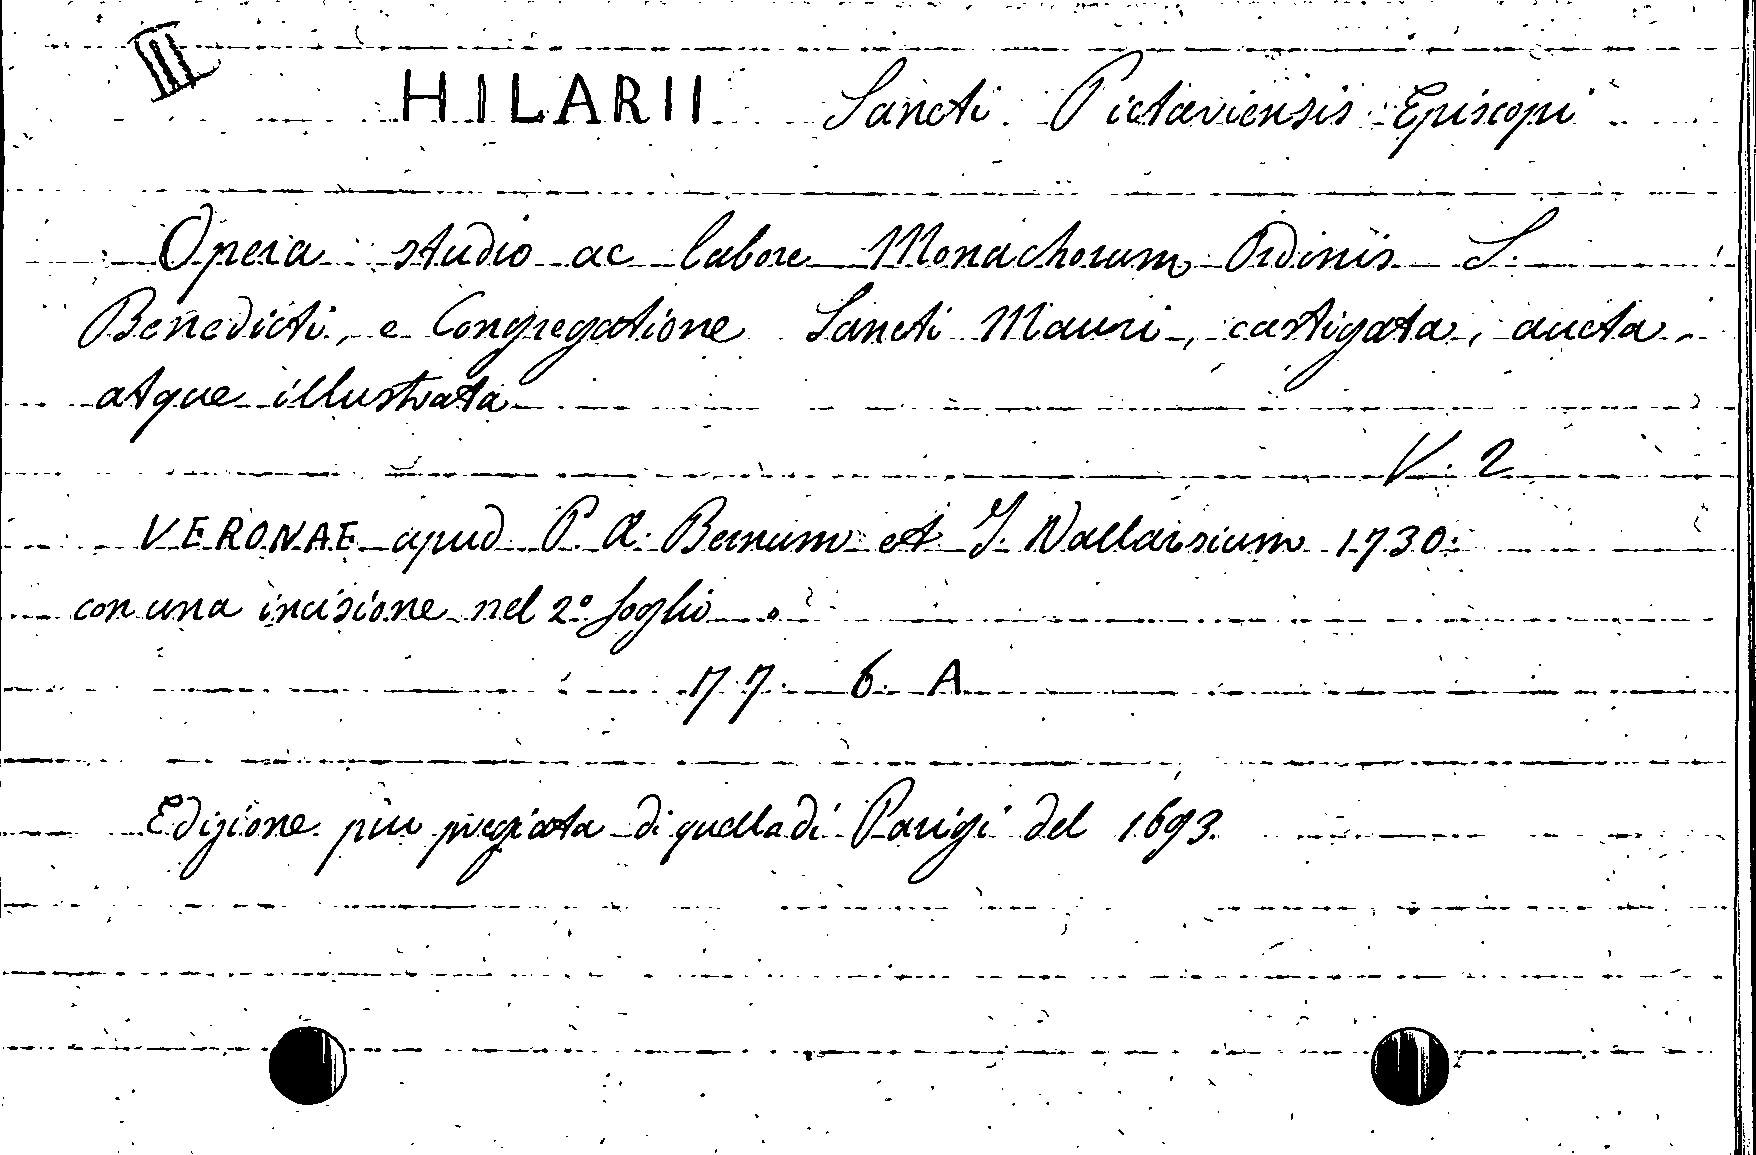 III
HILARII Sancti Pictaviensis Episcopi
Opera studio ac labore Monachorum Ordinis S.
Benedicti, e Congregatione Sancti Mauri, castigata, aucta,
atque illustrata
V. 2
VERONAE apud P. A. Bernum et J. Vallarsium 1730.
con una incisione nel 2º foglio.
77. 6. A
Edizione più pregiata di quella di Parigi del 1693.